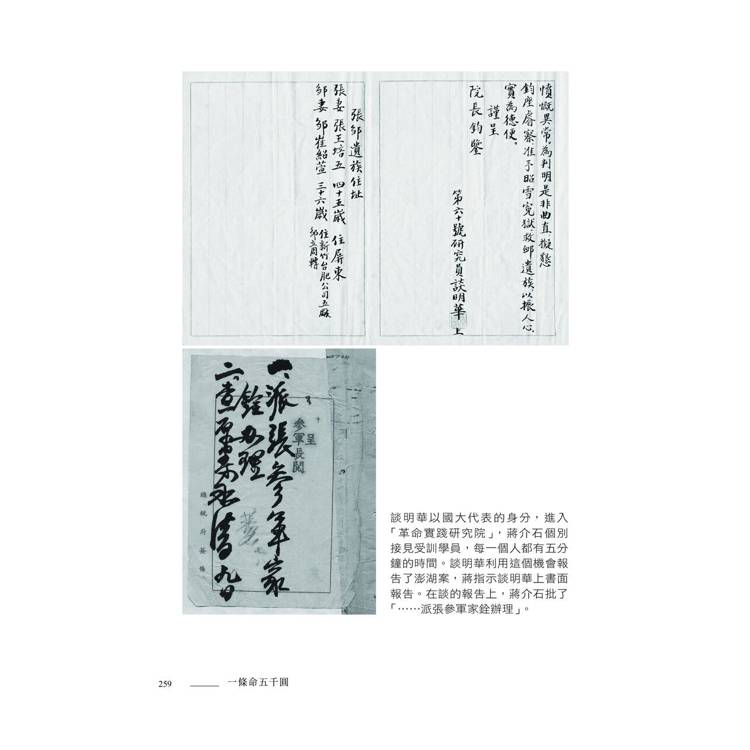 憤慨異常。為判明是非曲直，擬懇
鈞座睿察，准予昭雪冤獄，救卹遺族，以振人心，
實為德便。
謹呈
院長鈞鑒
第六十號研究員談明華 上
張鄒遺族住址
張妻 張王培五 四十五歲 住屏東
鄒妻 鄒崔紹萱 三十六歲 住新竹台肥公司五廠
鄒立周轉
呈
參軍長閱
一、派張參軍家
銓辦理
總統府簽條
談明華以國大代表的身分，進入
「革命實踐研究院」，蔣介石個別
接見受訓學員，每一個人都有五分
鐘的時間。談明華利用這個機會報
告了澎湖案，蔣指示談明華上書面
報告。在談的報告上，蔣介石批了
「⋯⋯派張參軍家銓辦理」。
259 一條命五千圓